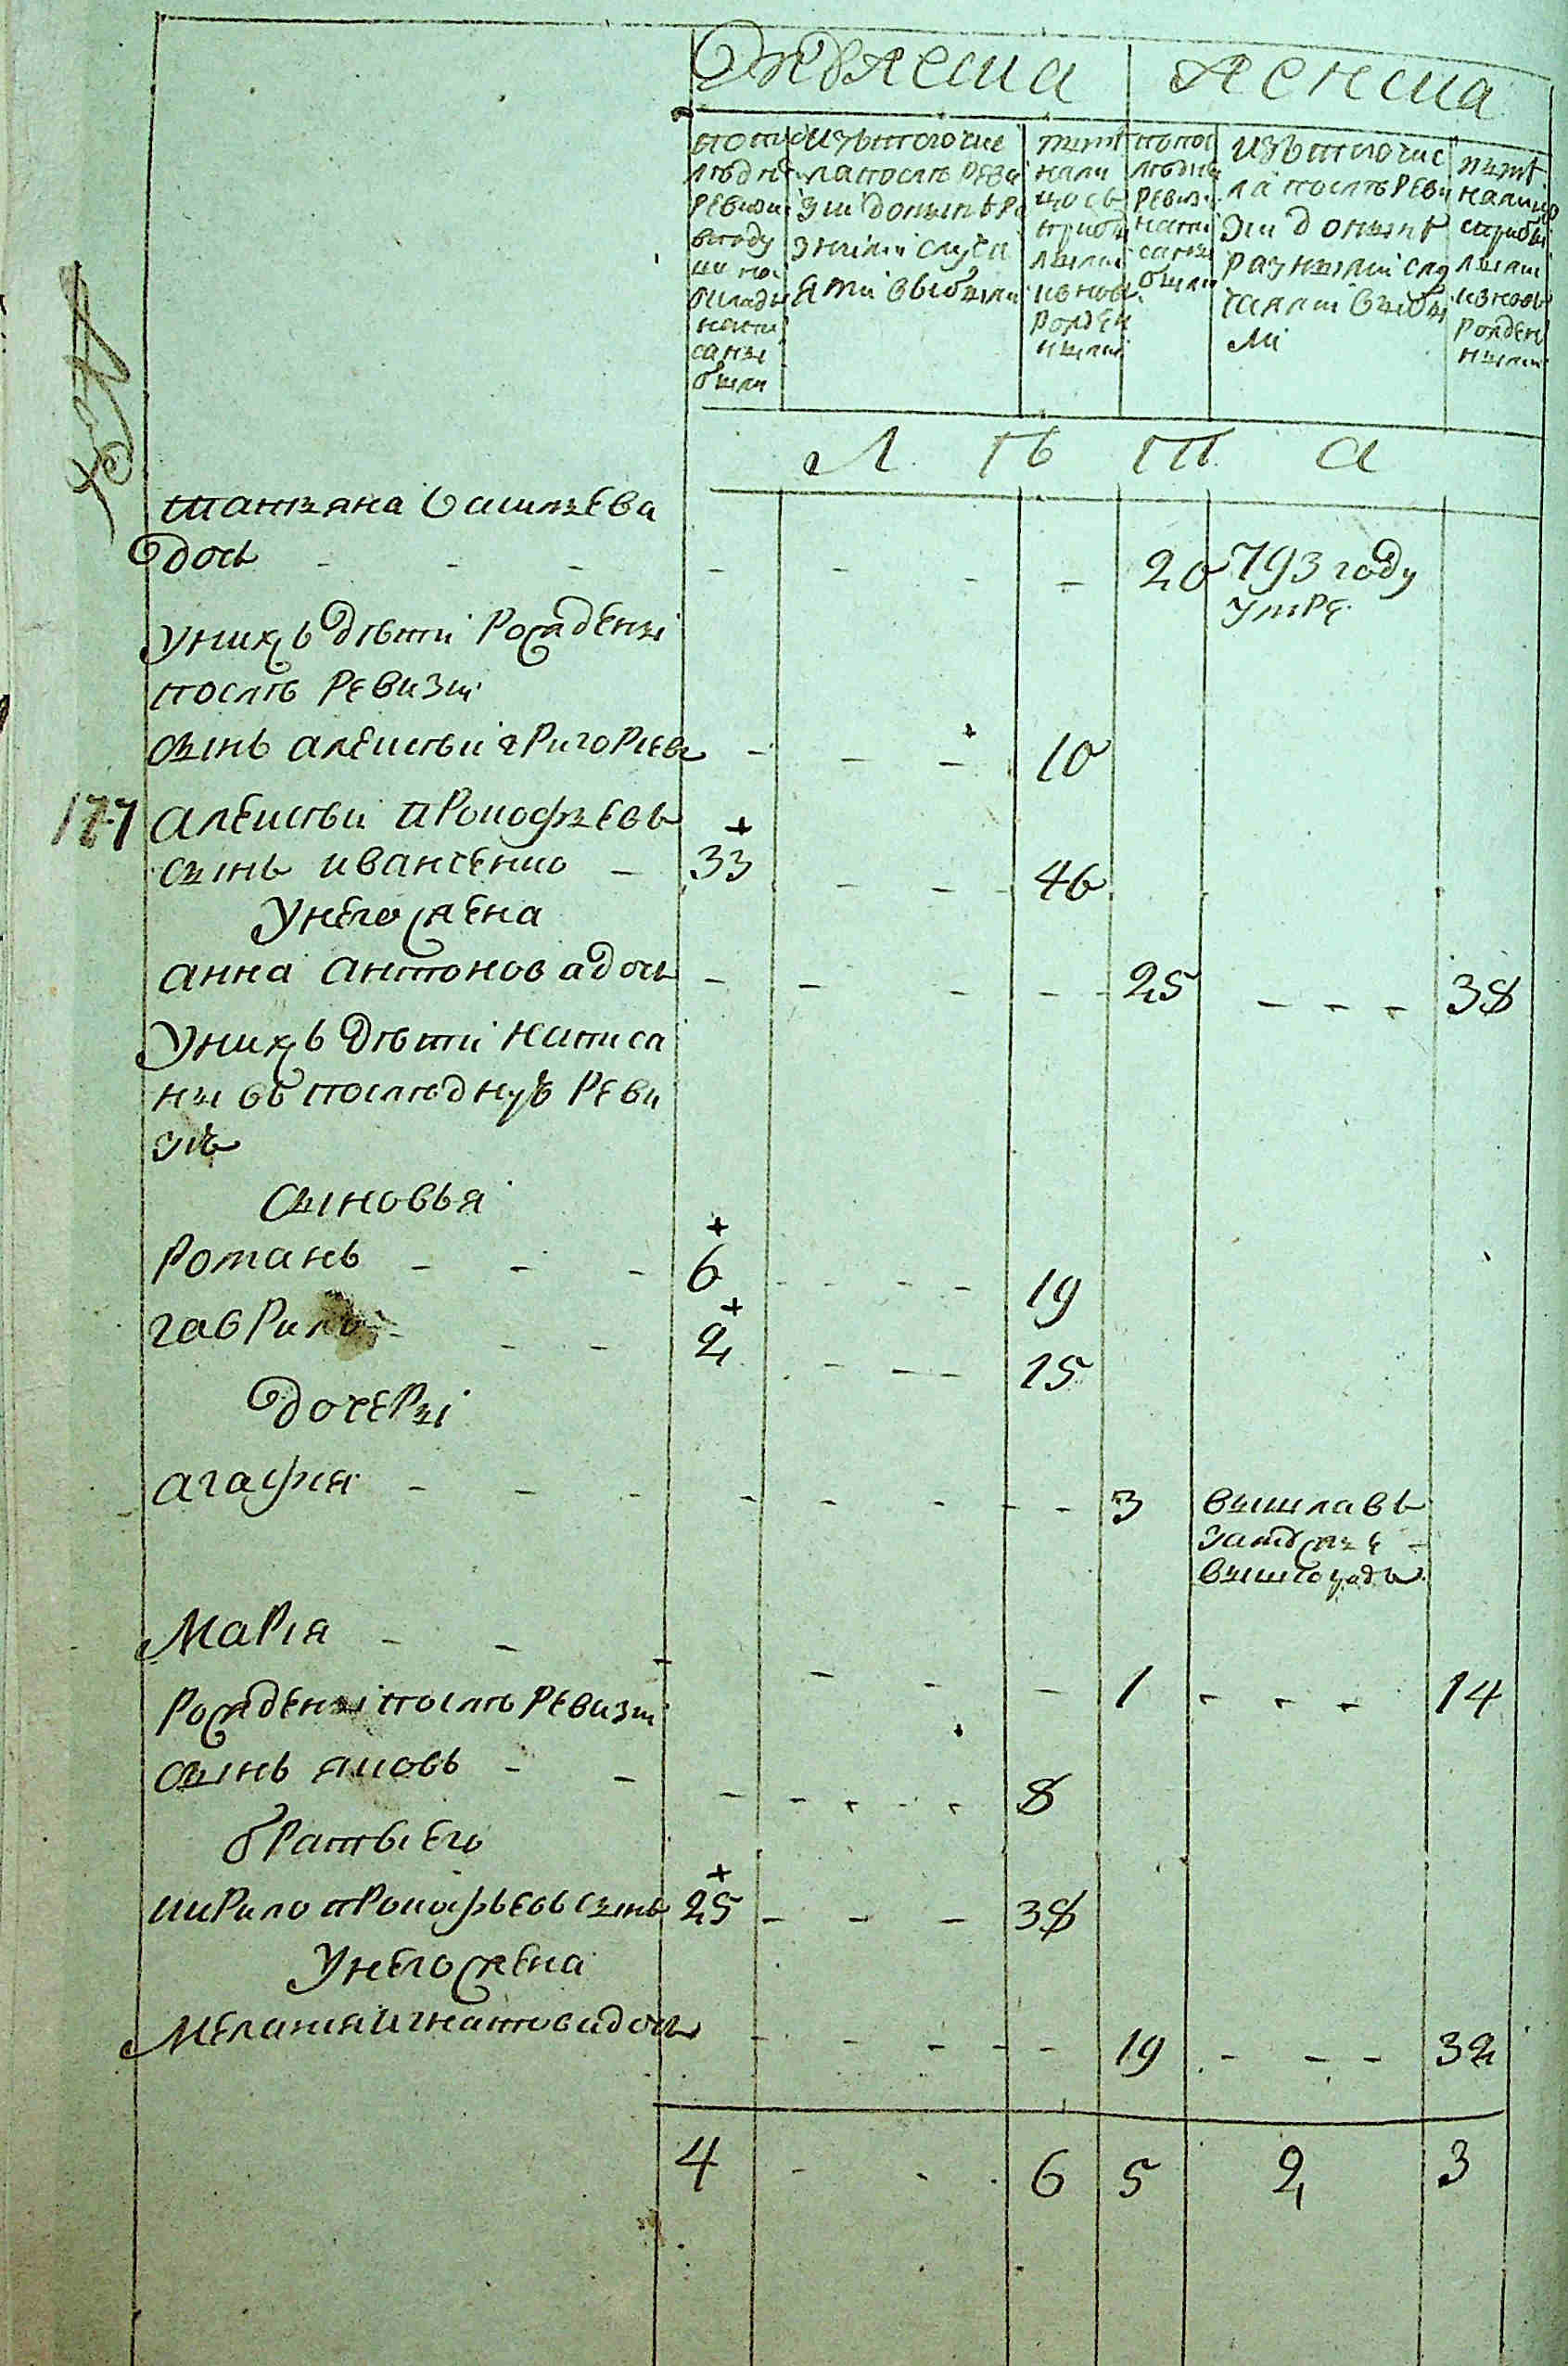 Мужеска Женска
по последней ревизии в году какой и какихъ лѣтъ написаны были
изъ того числа после ревизии до ныне разными случаями выбыли
ныне на лицо с прибылыми и вновь рожденными
по последней ревизии написаны были
изъ того числа после ревизии до ныне разными случаями выбыли
ныне на лицо с прибылыми и вновь рожденными
Л ѣ т а
татьяна васильева
дочь - - - - - - - 20 793 году
умре
у нихъ дѣти рожденыи
послѣ ревизии
сынъ алексѣй григорьевъ - - - 10
177 алексѣй прокофьевъ
сынъ иванченко - 33 - - - 46
у него жена
анна антонова дочь - - - - - 25 - - - 38
у нихъ дѣти написа
ны въ последную реви
зію
сыновья
романъ - - - 6 - - - - 19
гаврило - - - 2 - - - - 15
дочеры
агафия - - - - - - - - 3 вышла въ
замужье -
вышгородъ
Мария - - - - - - 1 - - - 14
рожденыи послѣ ревизии
сынъ яковъ - - - - - - - 8
братъ его
кирило прокофьевъ сынъ 25 - - - 38
у него жена
Мелания игнатова дочь - - - - - 19 - - - 32
4 - - - 6 5 2 3